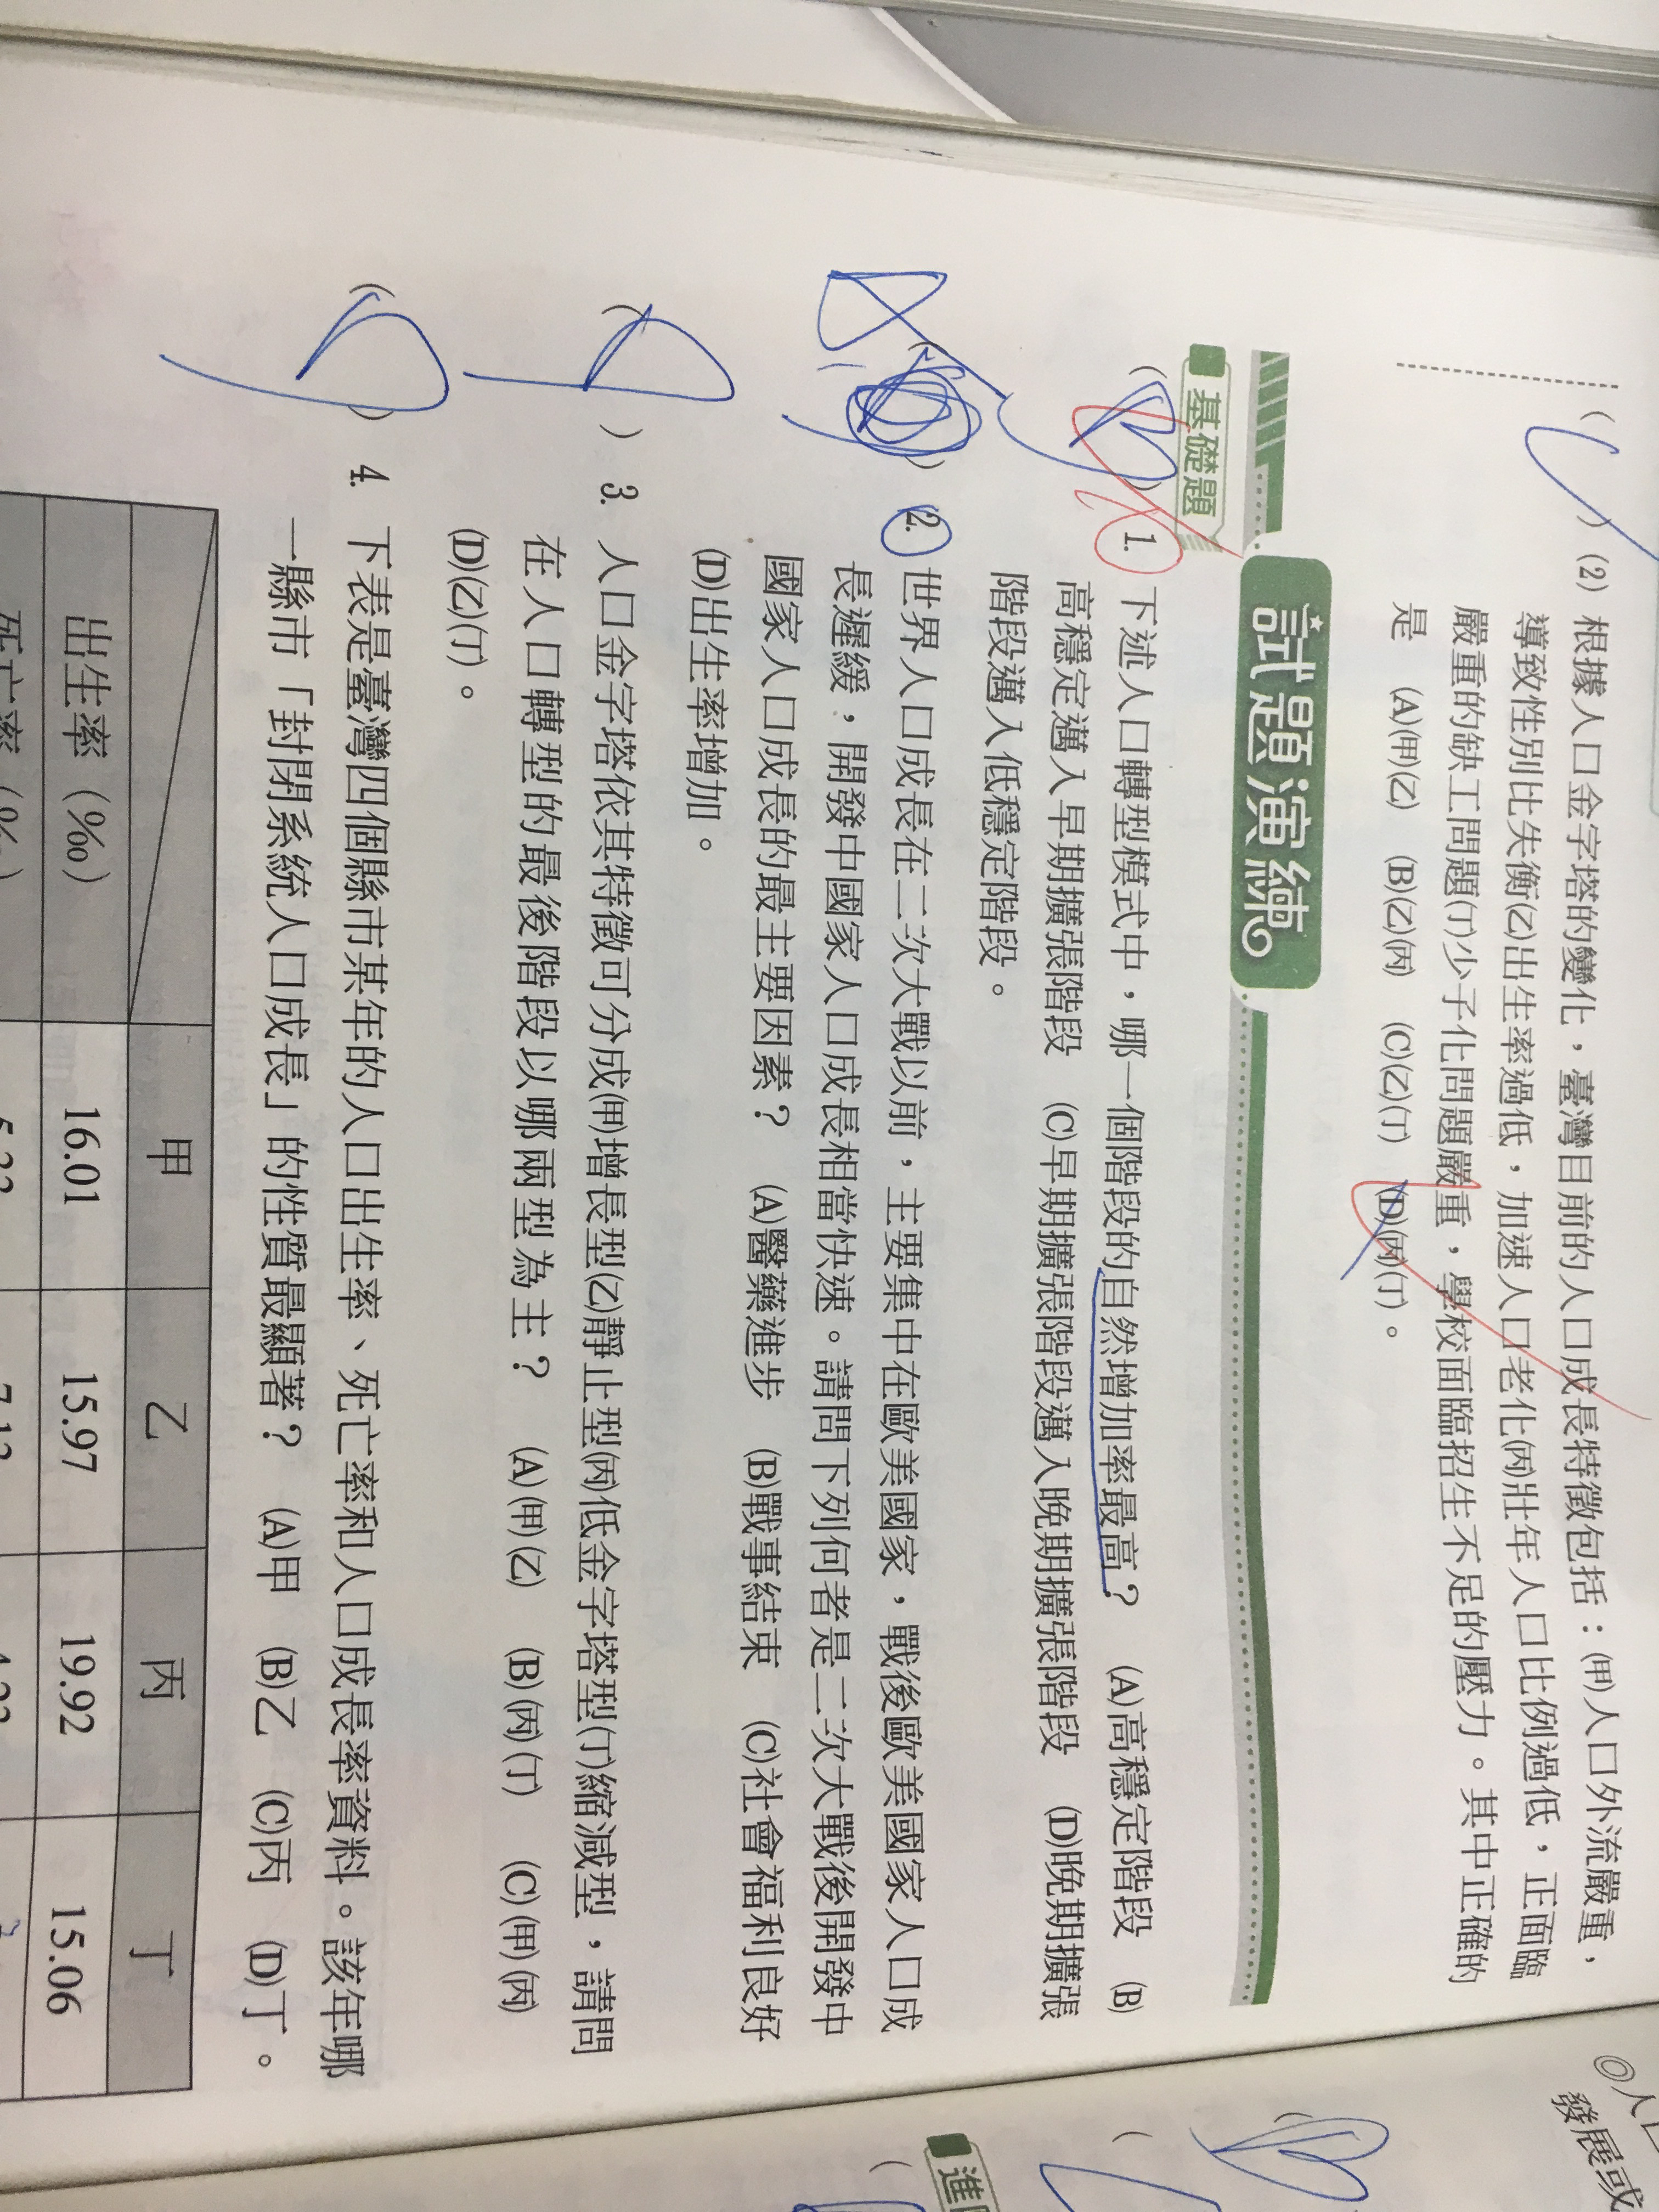 ( C ) (2) 根據人口金字塔的變化，臺灣目前的人口成長特徵包括：(甲)人口外流嚴重，
導致性別比失衡(乙)出生率過低，加速人口老化(丙)壯年人口比例過低，正面臨
嚴重的缺工問題(丁)少子化問題嚴重，學校面臨招生不足的壓力。其中正確的
是 (A)(甲)(乙) (B)(乙)(丙) (C)(乙)(丁) (D)(丙)(丁)。
試題演練
基礎題
( ) 1. 下述人口轉型模式中，哪一個階段的自然增加率最高？ (A)高穩定階段 (B)
高穩定邁入早期擴張階段 (C)早期擴張階段邁入晚期擴張階段 (D)晚期擴張
階段邁入低穩定階段。
( ) 2. 世界人口成長在二次大戰以前，主要集中在歐美國家，戰後歐美國家人口成
長遲緩，開發中國家人口成長相當快速。請問下列何者是二次大戰後開發中
國家人口成長的最主要因素？ (A)醫藥進步 (B)戰事結束 (C)社會福利良好
(D)出生率增加。
( ) 3. 人口金字塔依其特徵可分成(甲)增長型(乙)靜止型(丙)低金字塔型(丁)縮減型，請問
在人口轉型的最後階段以哪兩型為主？ (A)(甲)(乙) (B)(丙)(丁) (C)(甲)(丙)
(D)(乙)(丁)。
( ) 4. 下表是臺灣四個縣市某年的人口出生率、死亡率和人口成長率資料。該年哪
一縣市「封閉系統人口成長」的性質最顯著？ (A)甲 (B)乙 (C)丙 (D)丁。
甲 乙 丙 丁
出生率（‰） 16.01 15.97 19.92 15.06
死亡率（‰）
◎人口
發展或
進